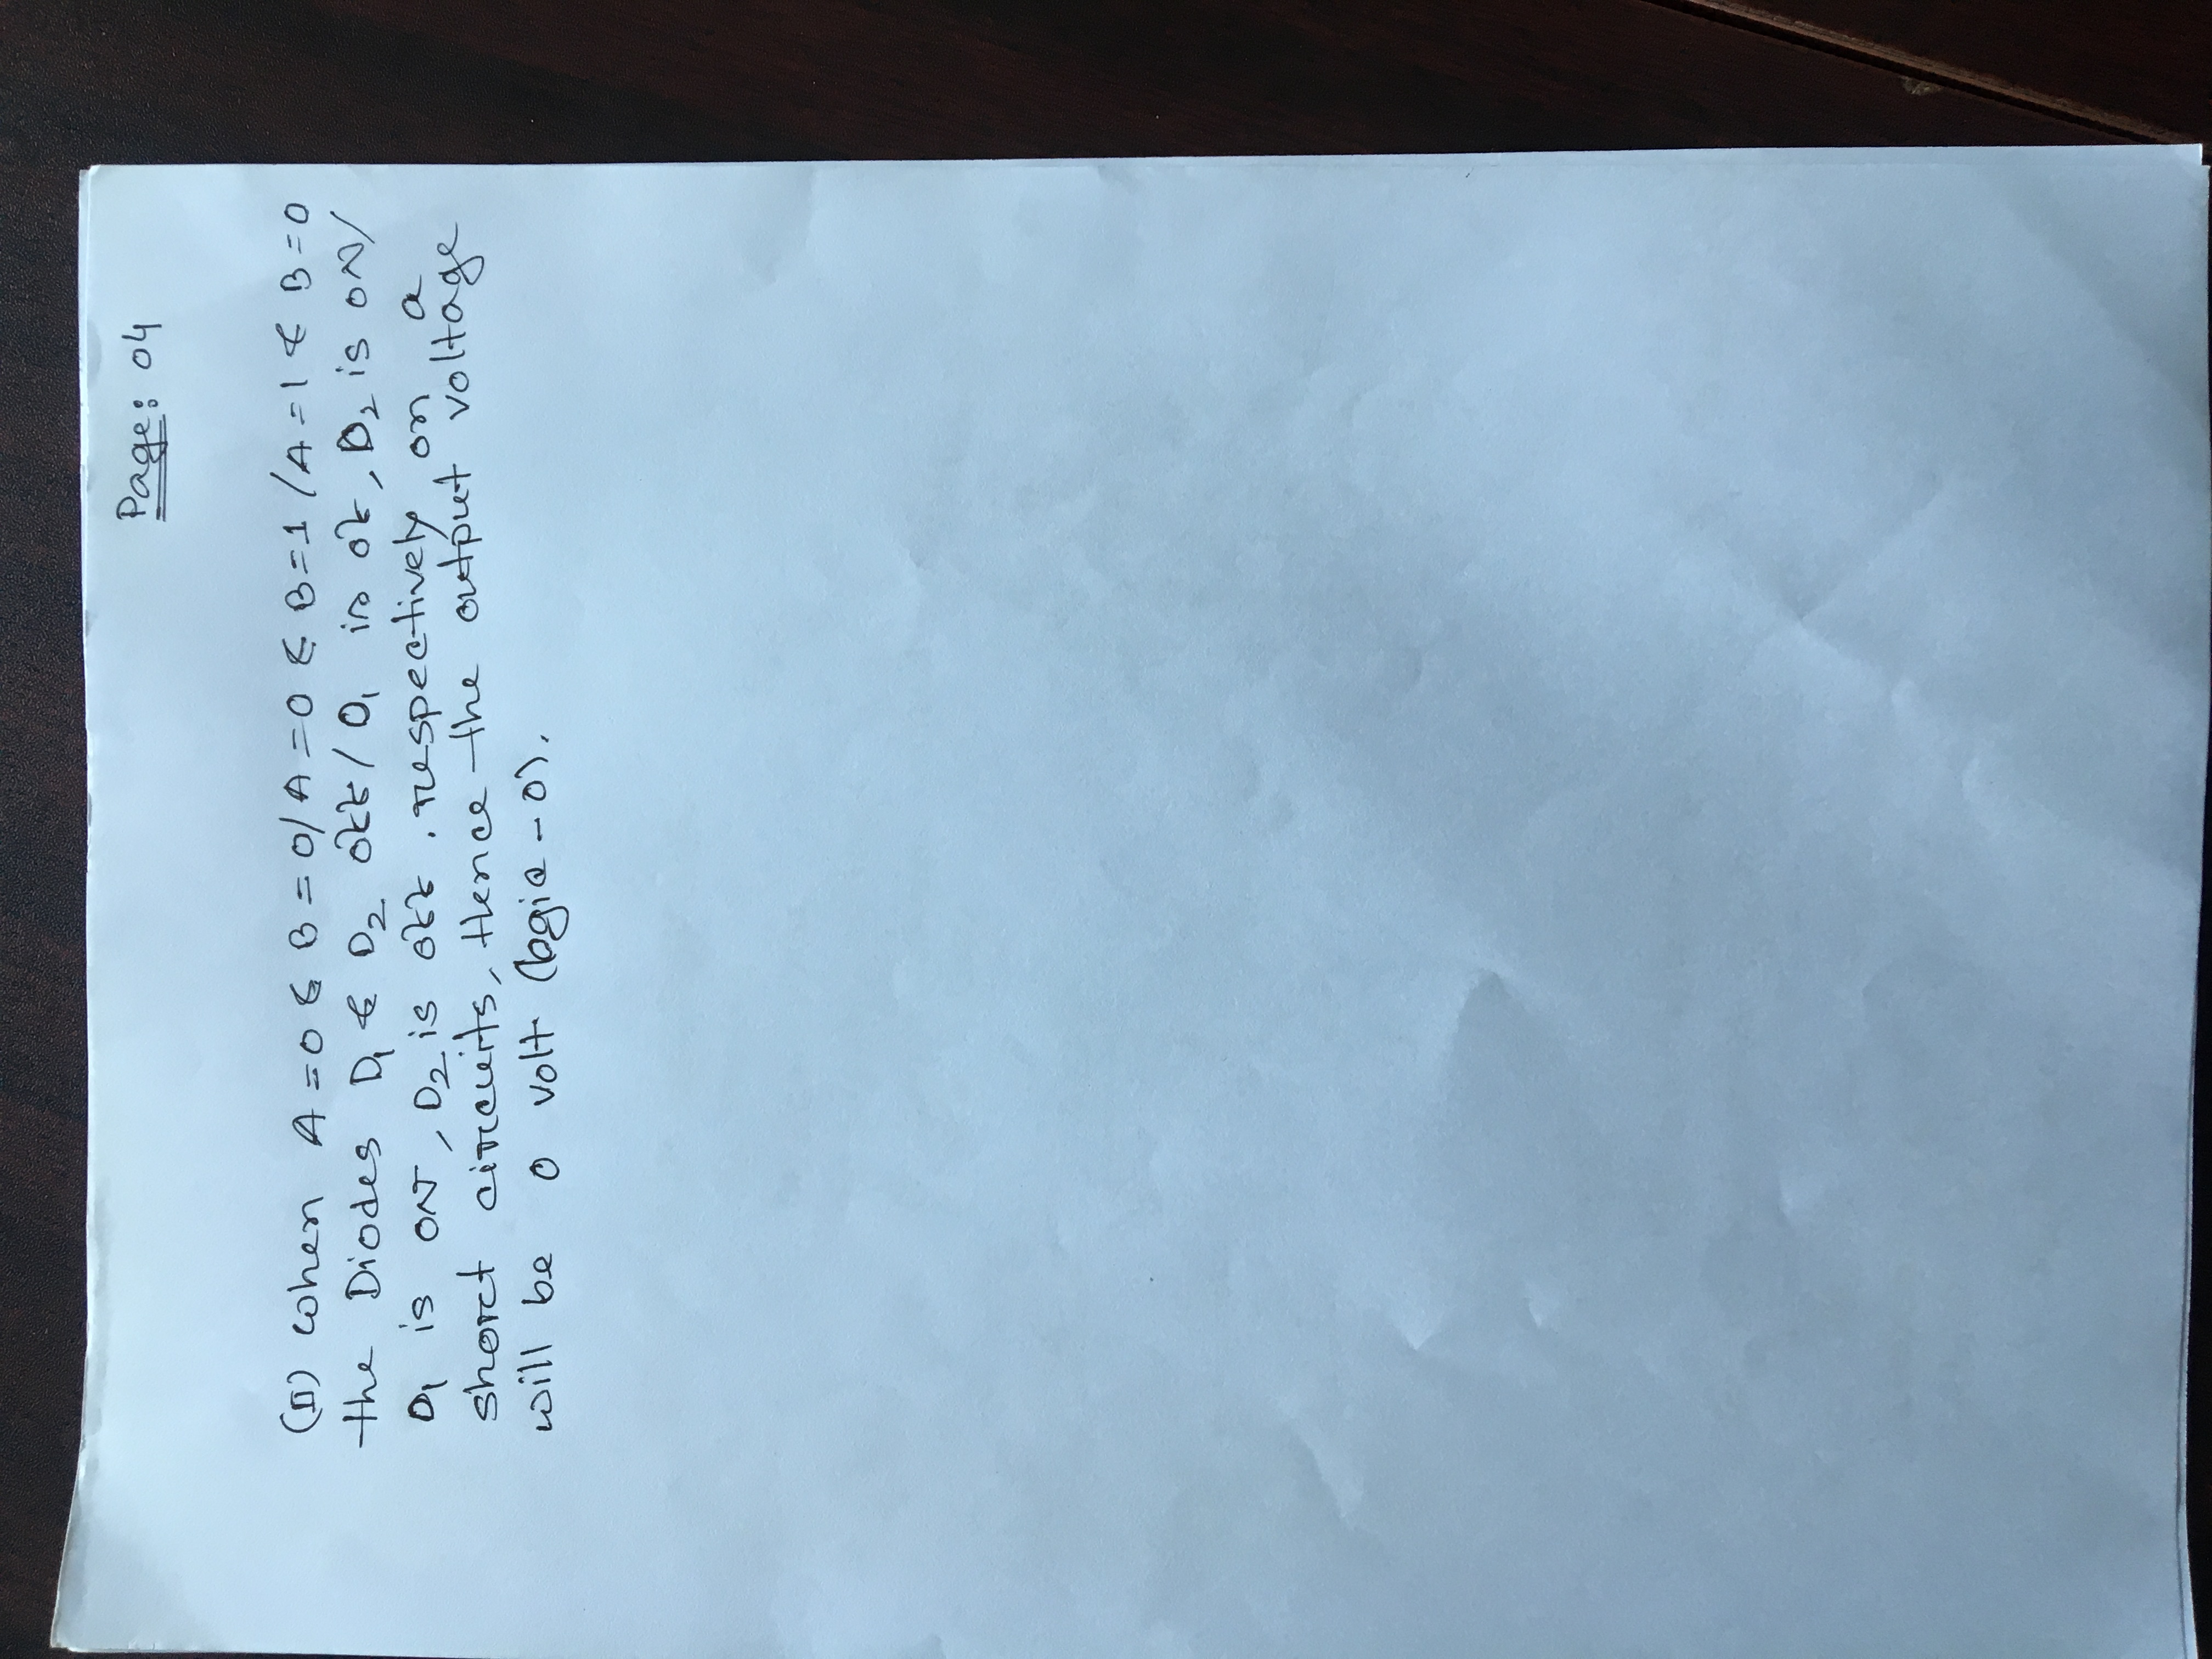 Page: 04
(II) when A = 0 & B = 0/ A = 0 & B = 1 / A = 1 & B = 0
the Diodes D1 & D2 off / D1 is of, D2 is ON/
D1 is ON, D2 is off, respectively on a
short circuits, Hence the output voltage
will be 0 volt (logic - 0).